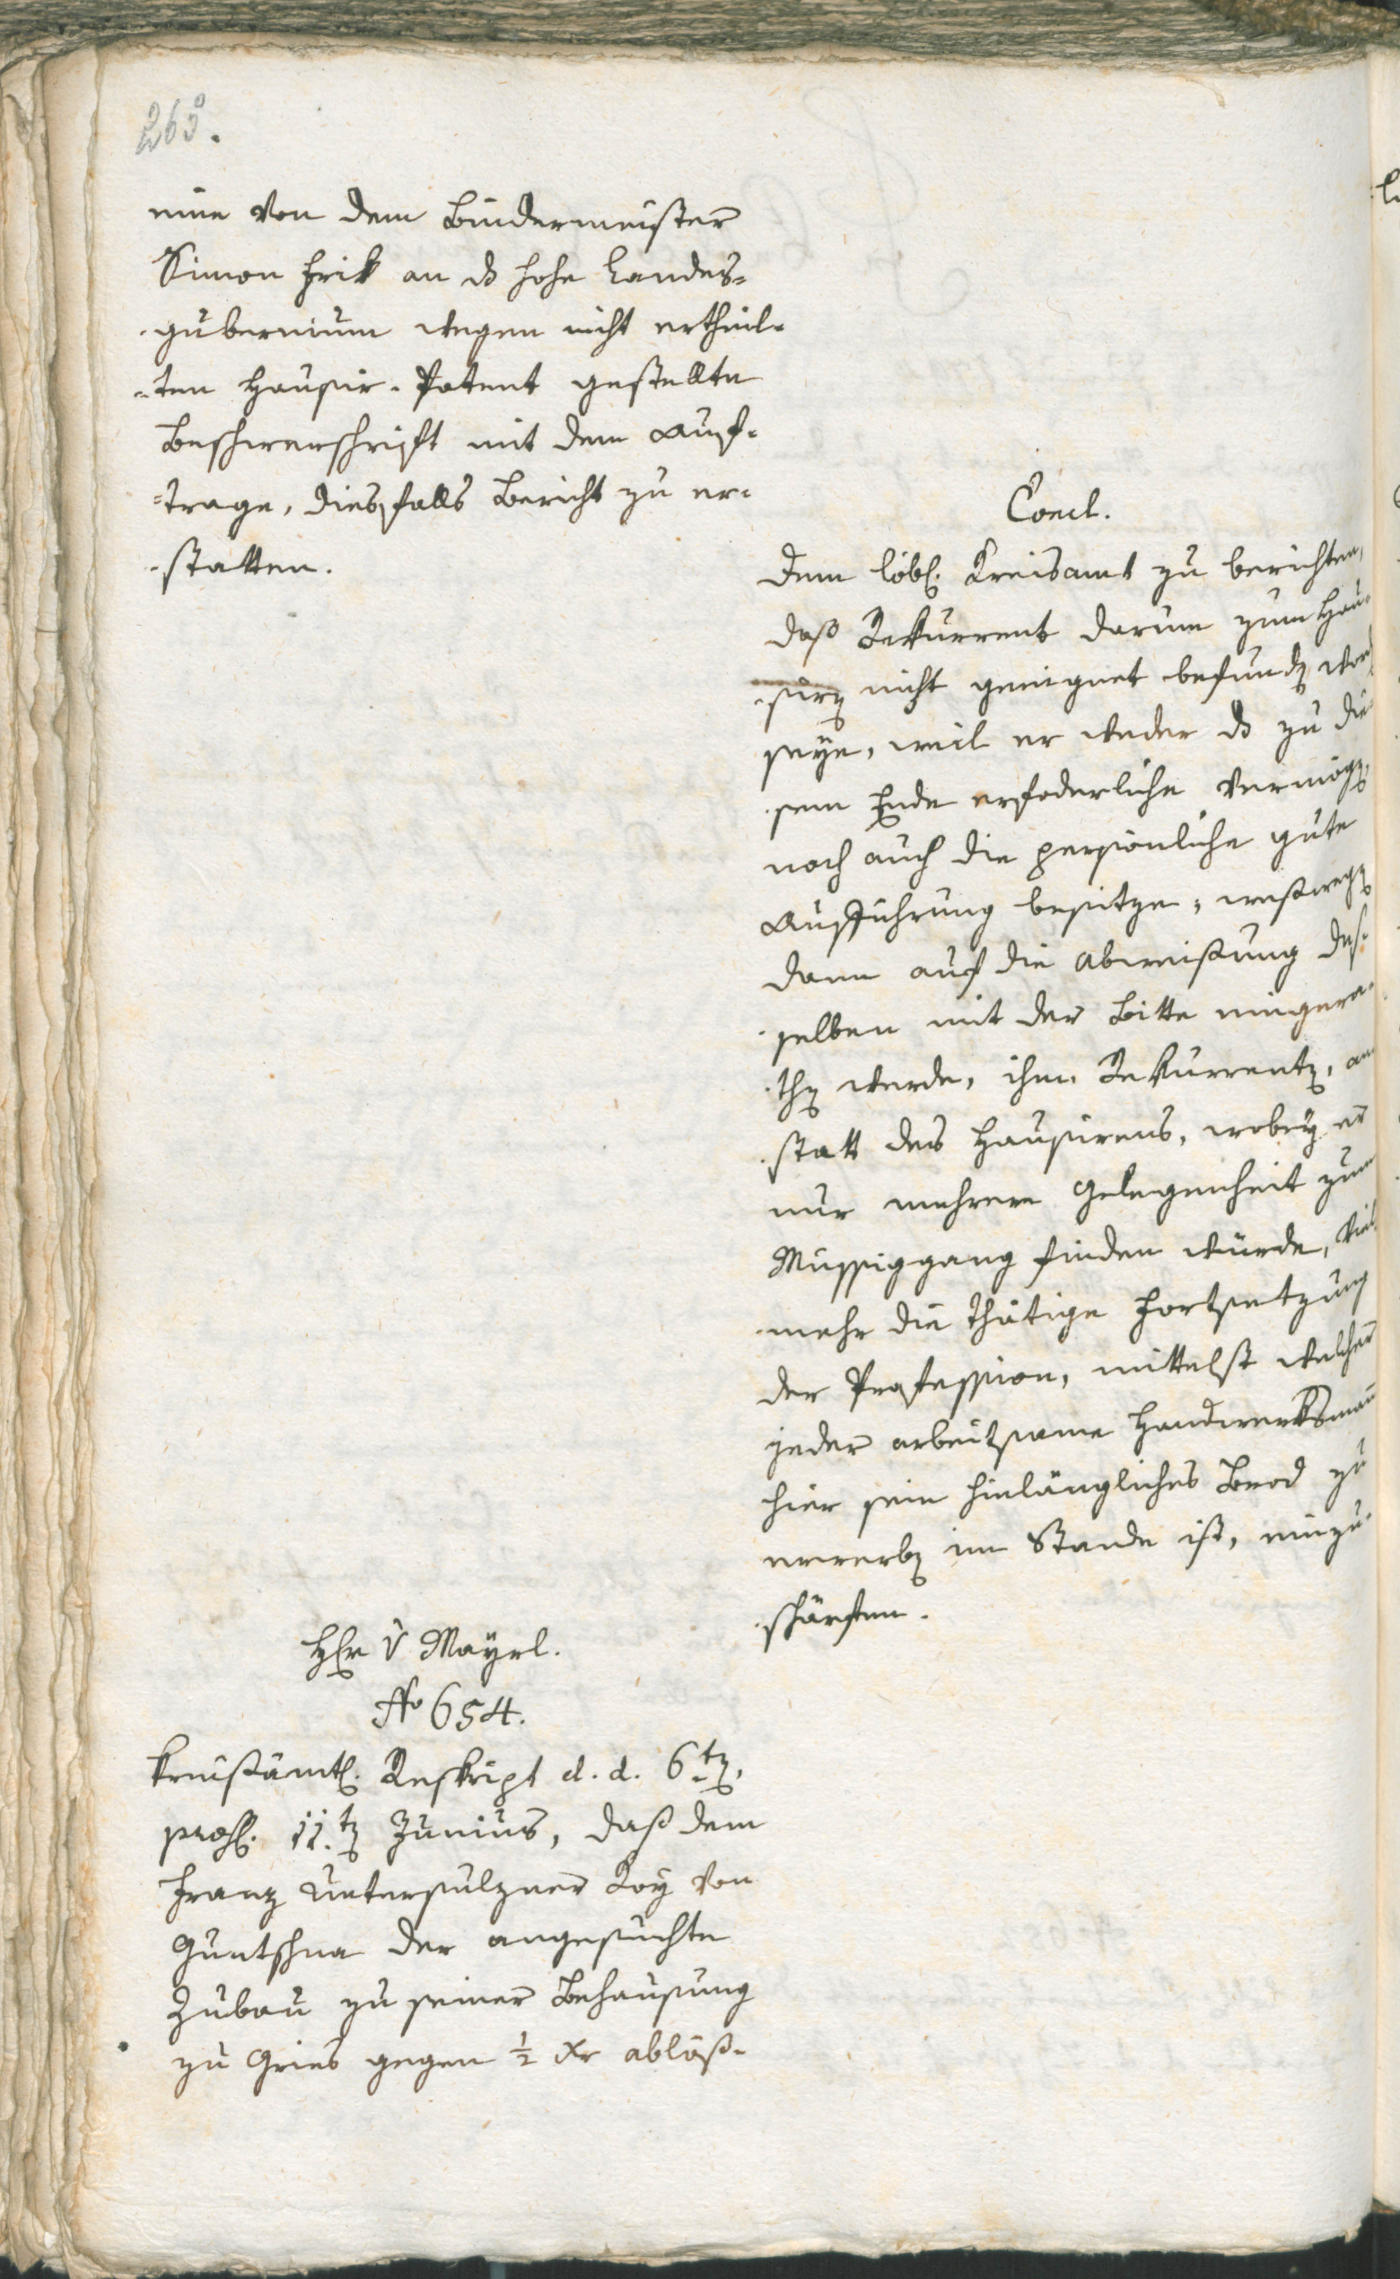 265.
eine von dem Bindermeister
Simon Frik an ds hohe Landes-
gubernium wegen nicht ertheil-
-ten Hausir-Patent gestellte
Beschwerschrift mit dem Auf-
-trage, diesfalls Bericht zu er-
-statten.
Concl.
Dem löbl. Kreisamt zu berichten,
daß Rekurrent darum zum Hau-
-sirn nicht geeignet befunden word
seye, weil er weder ds zu die-
-sem Ende erfoderliche Vermögen,
noch auch die persönliche gute
Aufführung besitze, weßwegen
dann auf die Abweisung des-
-selben mit der Bitte eingera-
-then werde, ihm Rekurrenten, an-
-statt des Hausirens, wobey er
nur mehrere Gelegenheit zum
Mussiggang finden würde, viel-
-mehr die thätige Fortsetzung
der Profession, mittelst welcher
jeder arbeitsame Handwerksmann
hier sein hinlängliches Brod zu
erwerben im Stande ist, einzu-
-schärfen.
Hr v Mayrl.
No 654.
Kreisämtl. Reskript d. d. 6ten,
præs. 11.ten Junius, daß dem
Franz Untersulzner Roy von
Guntschna der angesuchte
Zubau zu seiner Behausung
zu Gries gegen ½ Xr ablöß-